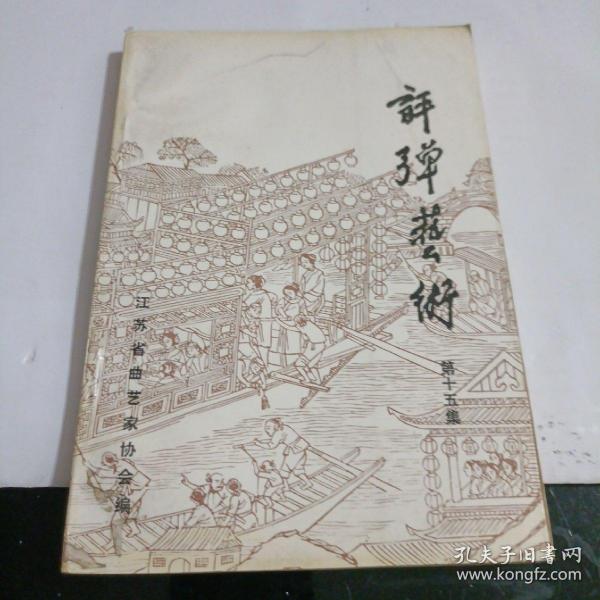 評弹藝術
第十五集
江苏省曲艺家协会编
孔夫子旧书网
www.kongfz.com